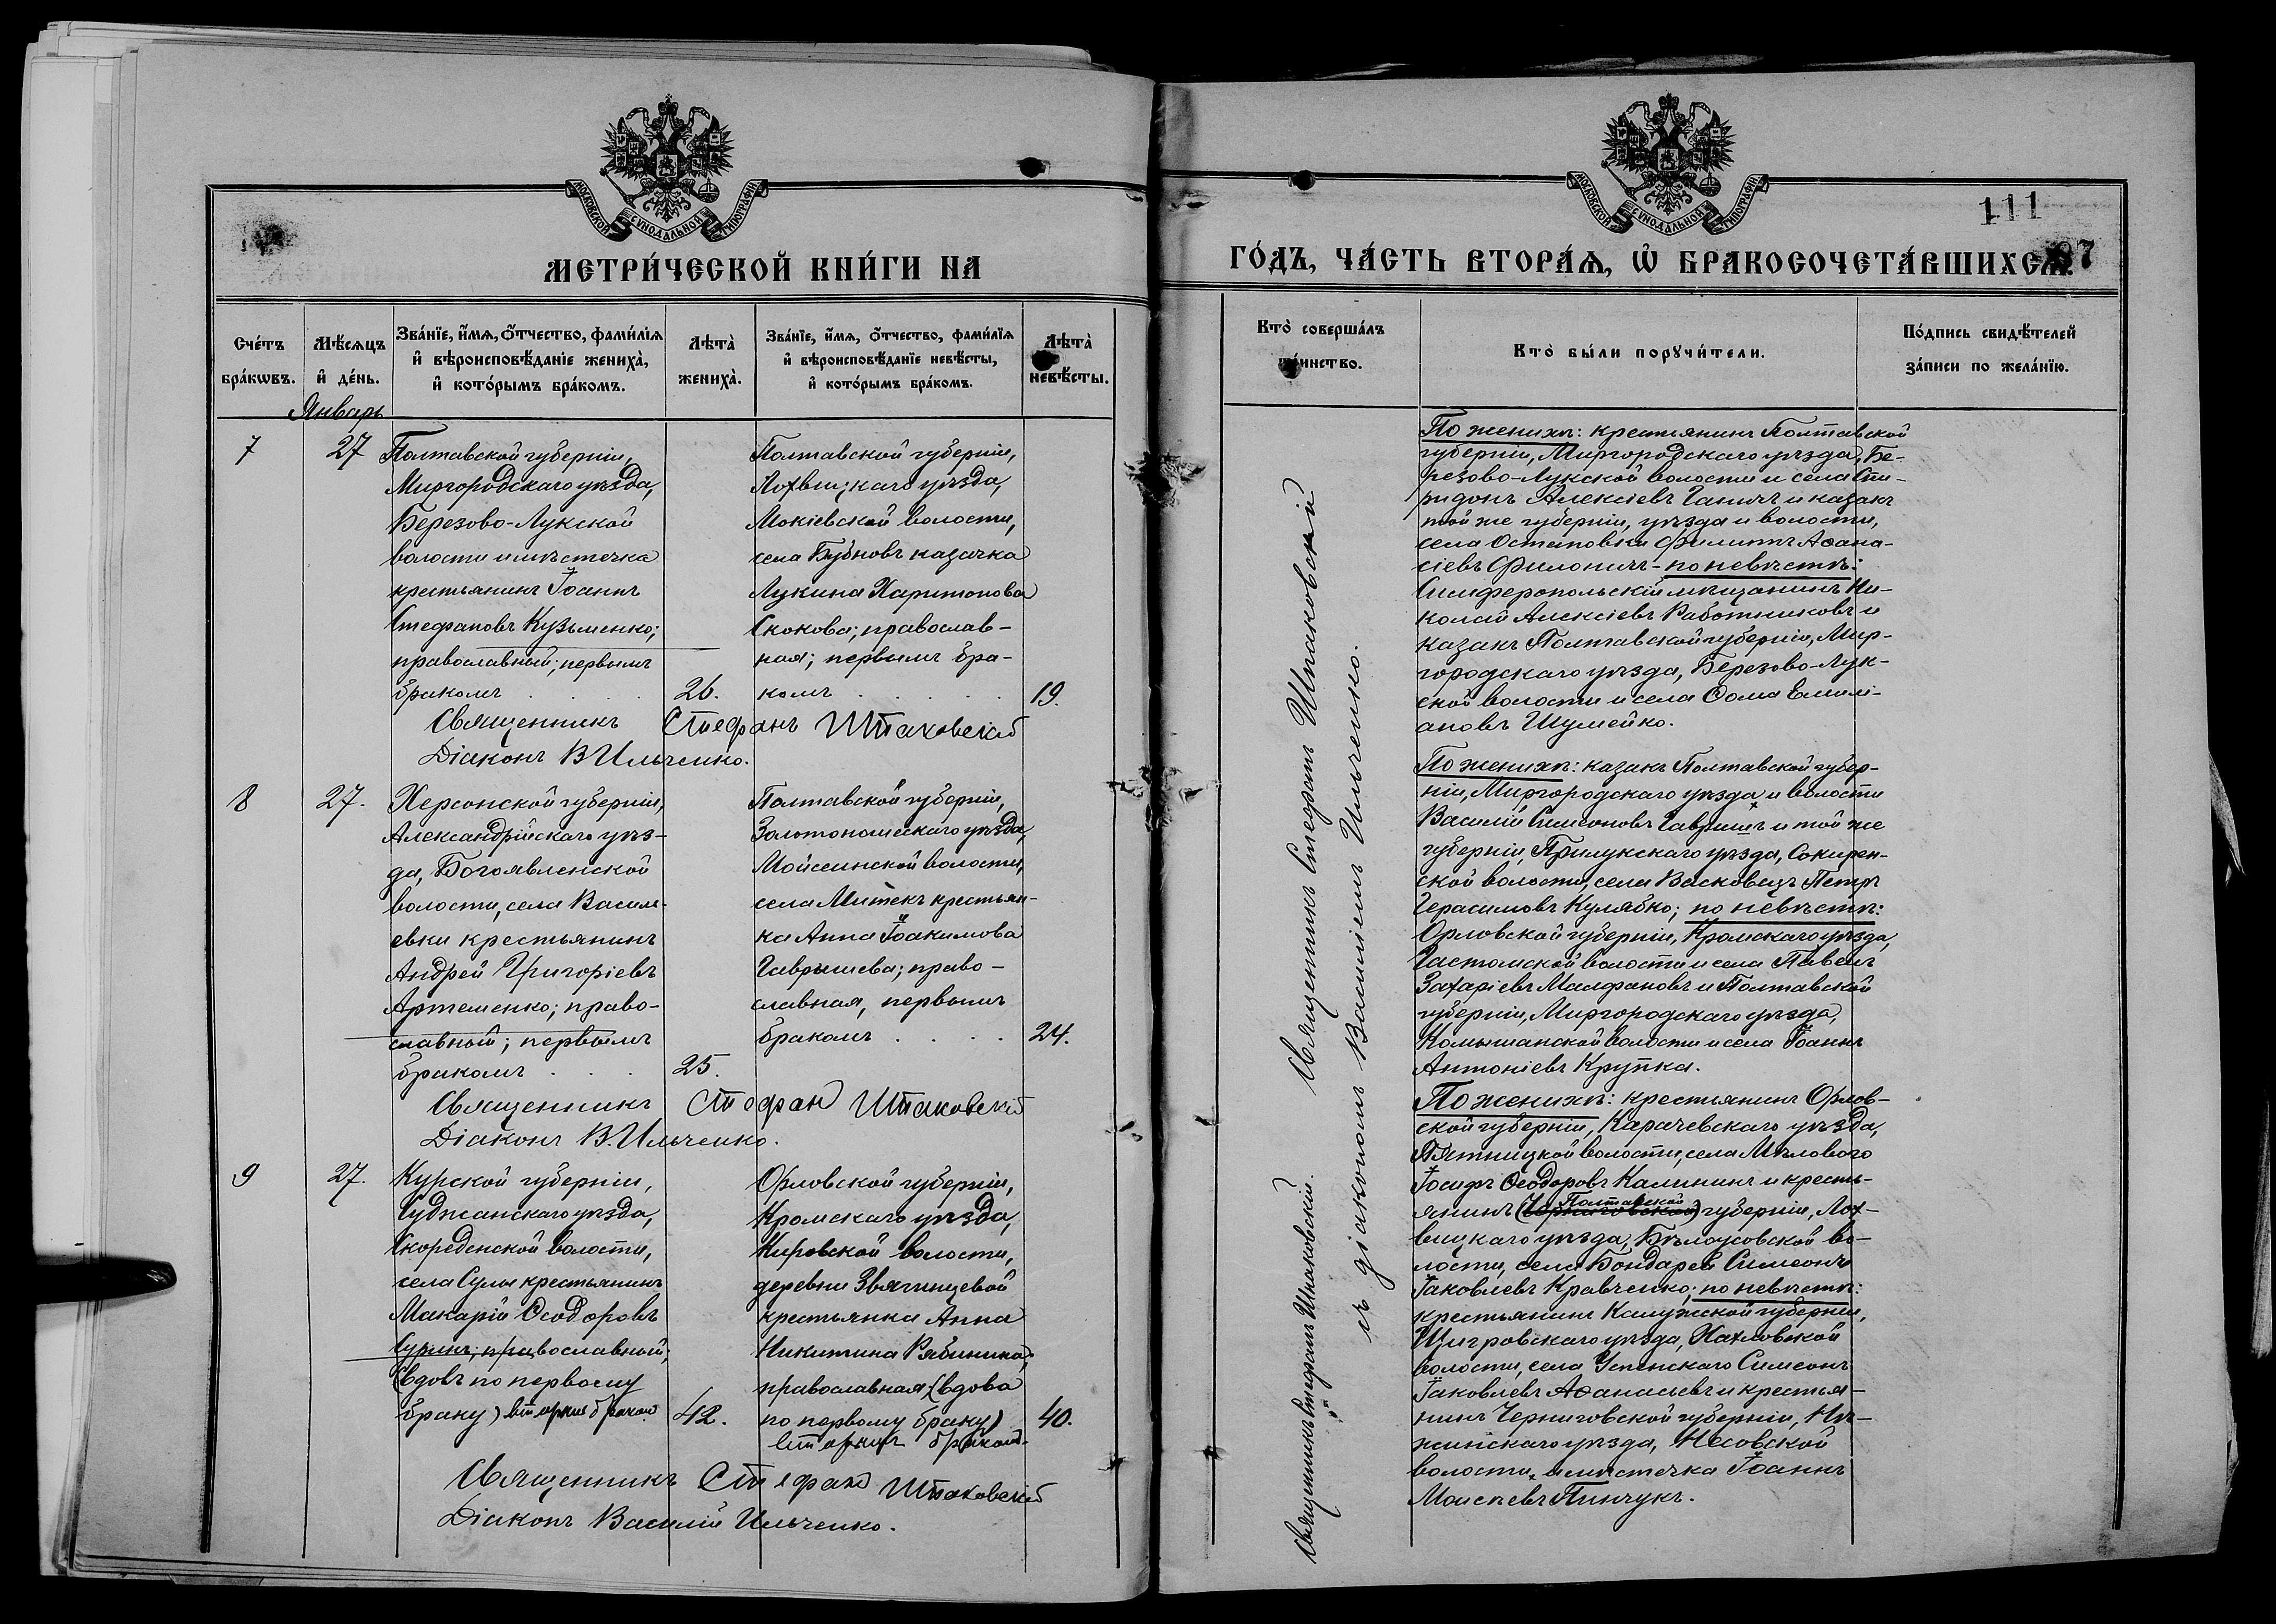 МОСКОВСКОЙ СѴНОДАЛЬНОЙ ТИПОГРАФІИ
МЕТРИ́ЧЕСКОЙ КНИ́ГИ НА
Сче́тъ бра́кѡвъ.
Мѣ́сяцъ и҆ де́нь.
Зва́нїе, и҆́мѧ, ѻ҆́тчество, фами́лїѧ и҆ вѣроисповѣ́данїе жениха̀, и҆ кото́рымъ бра́комъ.
Лѣта̀ жениха̀.
Зва́нїе, и҆́мѧ, ѻ҆́тчество, фами́лїѧ и҆ вѣроисповѣ́данїе невѣ́сты, и҆ кото́рымъ бра́комъ.
Лѣта̀ невѣ́сты.
Январь
7
27
Полтавской губерніи,
Миргородскаго уѣзда,
Березово-Лукской
волости и мѣстечка
крестьянинъ Іоаннъ
Стефановъ Кузьменко;
православный; первымъ
бракомъ
26.
Полтавской губерніи,
Лохвицкаго уѣзда,
Мокіевской волости,
села Бубновъ казачка
Лукина Харитонова
Скокова; православ-
ная; первымъ бра-
комъ
19.
Священникъ Стефанъ Шпаковскій
Діаконъ В Ильченко.
8
27.
Херсонской губерніи,
Александрійскаго уѣз-
да, Богоявленской
волости, села Василь-
евки крестьянинъ
Андрей Григоріевъ
Артеменко; право-
славный; первымъ
бракомъ
25.
Полтавской губерніи,
Золотоношскаго уѣзда,
Мойсеинской волости,
села Митекъ крестьян-
ка Анна Іоакимова
Гаврышева; право-
славная, первымъ
бракомъ
24.
Священникъ Стефан Шпаковскій
Діаконъ В. Ильченко.
9
27.
Курской губерніи,
Суджанскаго уѣзда,
Скороденской волости,
села Сулы крестьянинъ
Макарій Ѳеодоровъ
Суринъ; православный,
(вдовъ по первому
браку) вторымъ бракомъ
42.
Орловской губерніи,
Кромскаго уѣзда,
Кировской волости,
деревни Звягинцевой
крестьянка Анна
Никитина Рябинина,
православная, (вдова
по первому браку)
вторымъ бракомъ.
40.
Священникъ Стефан Шпаковскій
Діаконъ Василій Ильченко.
МОСКОВСКОЙ СѴНОДАЛЬНОЙ ТИПОГРАФІИ
111
97
ГО́ДЪ, ЧА́СТЬ ВТОРА́Ѧ, Ѡ҆ БРАКОСОЧЕТА́ВШИХСѦ.
Кто̀ соверша́лъ та́инство.
Кто̀ бы́ли порꙋчи́тели.
По́дпись свидѣ́телей за́писи по жела́нїю.
Священникъ Стефанъ Шпаковскій
съ діакономъ Василіемъ Ильченко.
Священникъ Стефанъ Шпаковскій.
По женихѣ: крестьянинъ Полтавской
губерніи, Миргородскаго уѣзда, Бе-
резово-Лукской волости и села Спи-
ридонъ Алексіевъ Ганичъ и казакъ
той же губерніи, уѣзда и волости,
села Остаповки Филиппъ Аѳана-
сіевъ Филоничъ - по невѣстѣ:
Симферопольскій мѣщанинъ Ни-
колай Алексіевъ Работниковъ и
казакъ Полтавской губерніи, Мир-
городскаго уѣзда, Березово-Лук-
ской волости и села Ѳома Емили-
ановъ Шумейко.
По женихѣ: казакъ Полтавской губер-
ніи, Миргородскаго уѣзда и волости
Василій Симеоновъ Гавришъ и той же
губерніи, Прилукскаго уѣзда, Сокирен-
ской волости, села Васковецъ Петръ
Герасимовъ Кулябко; по невѣстѣ:
Орловской губерніи, Кромскаго уѣзда,
Гастомской волости и села Павелъ
Захаріевъ Малфановъ и Полтавской
губерніи, Миргородскаго уѣзда,
Комышанской волости и села Іоаннъ
Антоніевъ Крупка.
По женихѣ: крестьянинъ Орлов-
ской губерніи, Карачевскаго уѣзда,
Пятницкой волости, села Мѣлового
Іосифъ Ѳеодоровъ Калининъ и кресть-
янинъ (Черниговской) Полтавской губерніи, Лох-
вицкаго уѣзда, Бѣлоусовской во-
лости, села Бондарей Симеонъ
Іаковлевъ Кравченко; по невѣстѣ:
крестьянинъ Калужской губерніи,
Щигровскаго уѣзда, Хохловской
волости, села Успенскаго Симеонъ
Іаковлевъ Аѳанасьевъ и крестья-
нинъ Черниговской губерніи, Нѣ-
жинскаго уѣзда, Носовской
волости и мѣстечка Іоаннъ
Моисеевъ Пинчукъ.